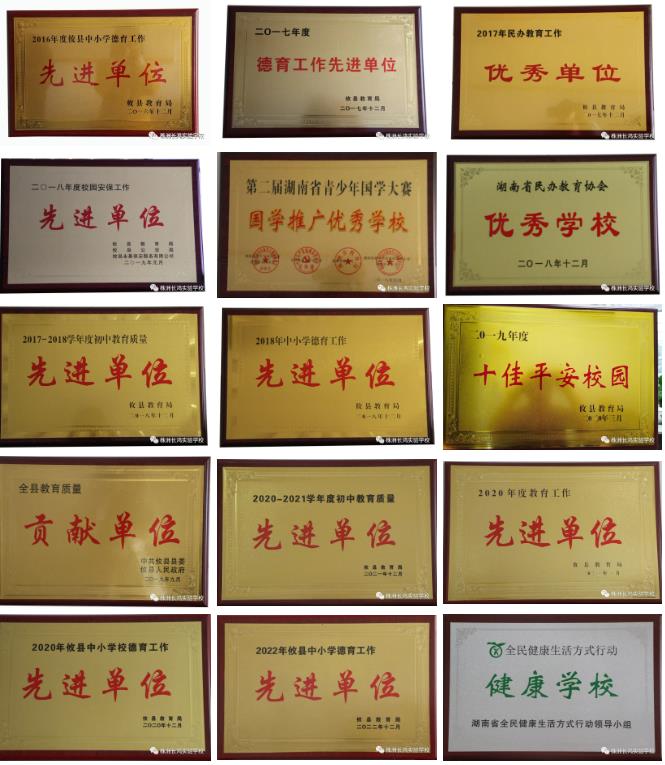 2016年度攸县中小学德育工作
先进单位
攸县教育局
二〇一六年十二月
株洲长鸿实验学校
二〇一七年度
德育工作先进单位
攸县教育局
二〇一七年十二月
株洲长鸿实验学校
2017年民办教育工作
优秀单位
攸县教育局
〇一七年十二月
株洲长鸿实验学校
二〇一八年度校园安保工作
先进单位
攸县教育局
攸县公安局
二〇一九年元月
株洲长鸿实验学校
第二届湖南省青少年国学大赛
国学推广优秀学校
株洲长鸿实验学校
湖南省民办教育协会
优秀学校
二〇一八年十二月
株洲长鸿实验学校
2017-2018学年度初中教育质量
先进单位
攸县教育局
二〇一八年十二月
株洲长鸿实验学校
2018年中小学德育工作
先进单位
攸县教育局
二〇一八年十二月
株洲长鸿实验学校
二〇一九年度
十佳平安校园
攸县教育局
二〇二〇年三月
株洲长鸿实验学校
全县教育质量
贡献单位
中共攸县县委
攸县人民政府
二〇一九年九月
株洲长鸿实验学校
2020-2021学年度初中教育质量
先进单位
攸县教育局
二〇二一年十二月
株洲长鸿实验学校
2020年度教育工作
先进单位
攸县教育局
株洲长鸿实验学校
2020年攸县中小学校德育工作
先进单位
攸县教育局
二〇二〇年十二月
株洲长鸿实验学校
2022年攸县中小学德育工作
先进单位
攸县教育局
二〇二二年十二月
株洲长鸿实验学校
全民健康生活方式行动
健康学校
湖南省全民健康生活方式行动领导小组
株洲长鸿实验学校